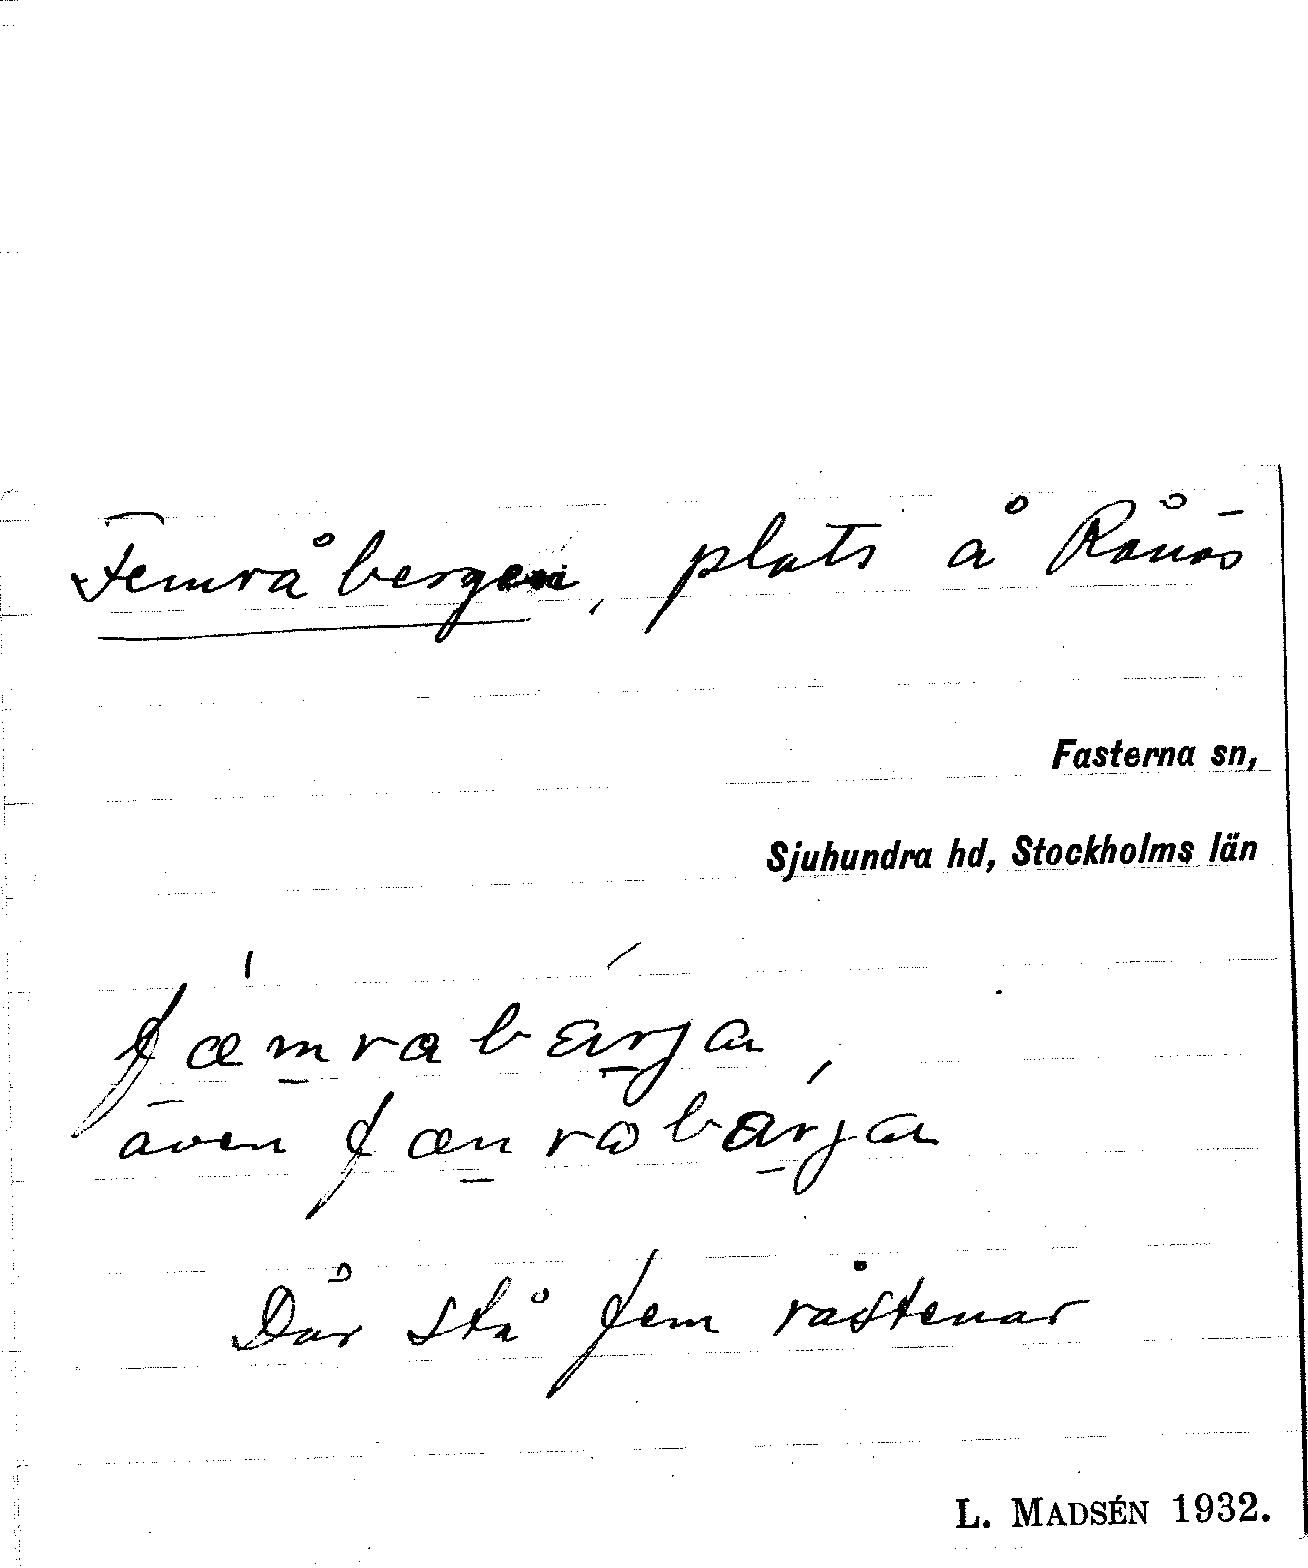 Femråbergen, plats å Rånäs
Fasterna sn,
Sjuhundra hd, Stockholms län
fæmrabærja,
även fænrabærja
Där stå fem råstenar
L. MADSÉN 1932.